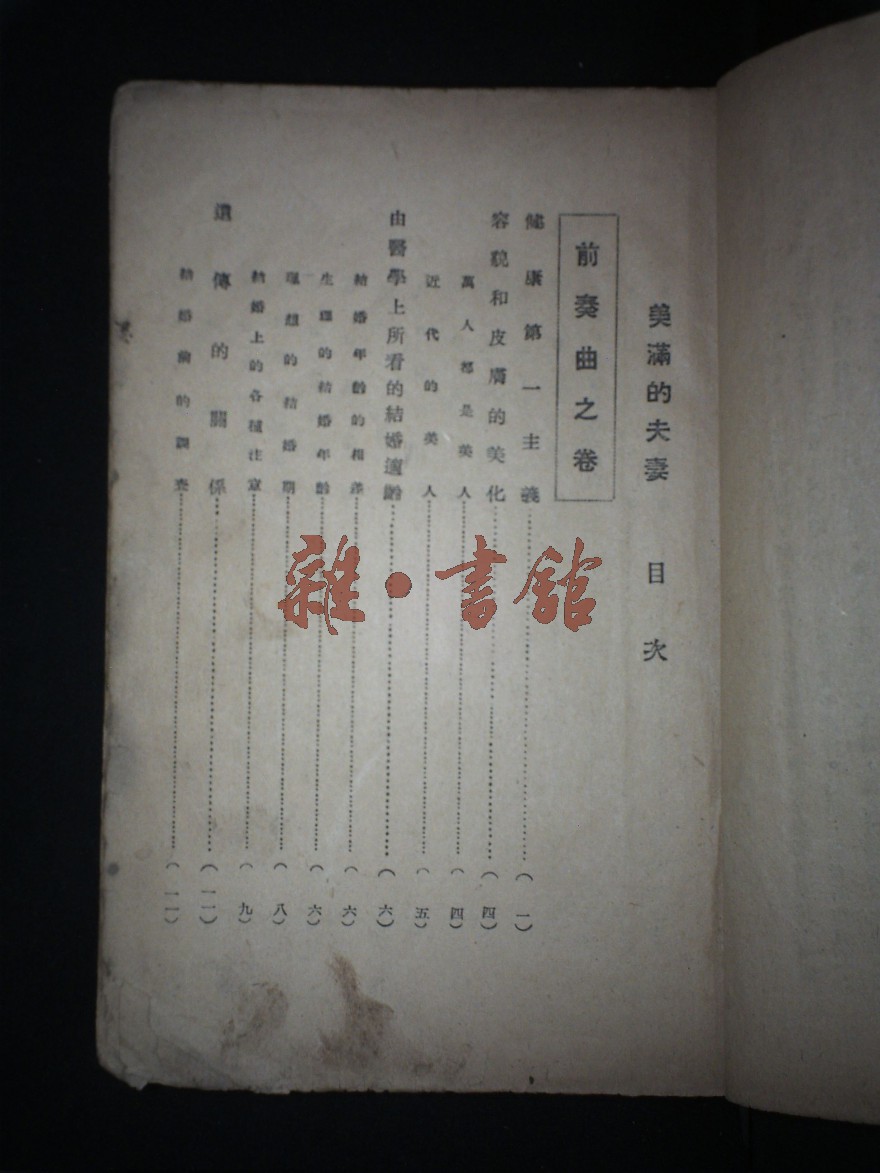 美滿的夫妻 目次
前奏曲之卷
健康第一主義……(一)
容貌和皮膚的美化……(四)
萬人都是美人……(四)
近代的美人……(五)
由醫學上所看的結婚適齡……(六)
結婚年齡的相差……(六)
生理的結婚年齡……(六)
理想的結婚期……(八)
結婚上的各種注意……(九)
遺傳的關係……(一一)
結婚前的調查……(一一)
雜·書館